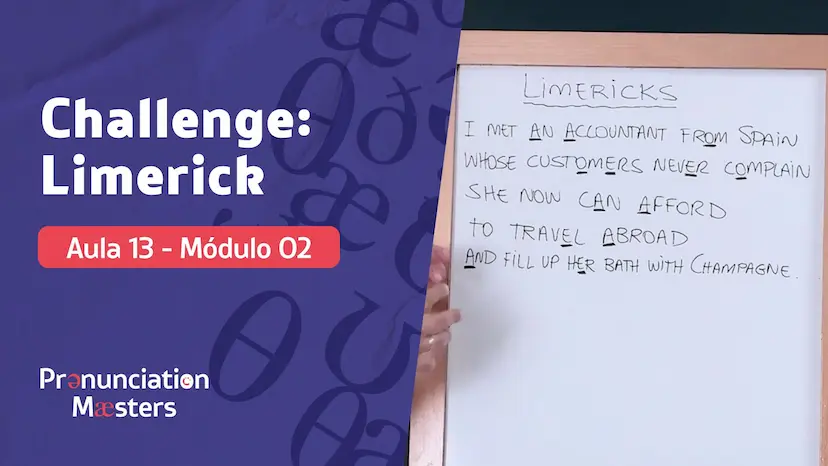 Challenge:
Limerick
Aula 13 - Módulo 02
Prənunciation
Mæsters
LIMERICKS
I MET AN ACCOUNTANT FROM SPAIN
WHOSE CUSTOMERS NEVER COMPLAIN
SHE NOW CAN AFFORD
TO TRAVEL ABROAD
AND FILL UP HER BATH WITH CHAMPAGNE.